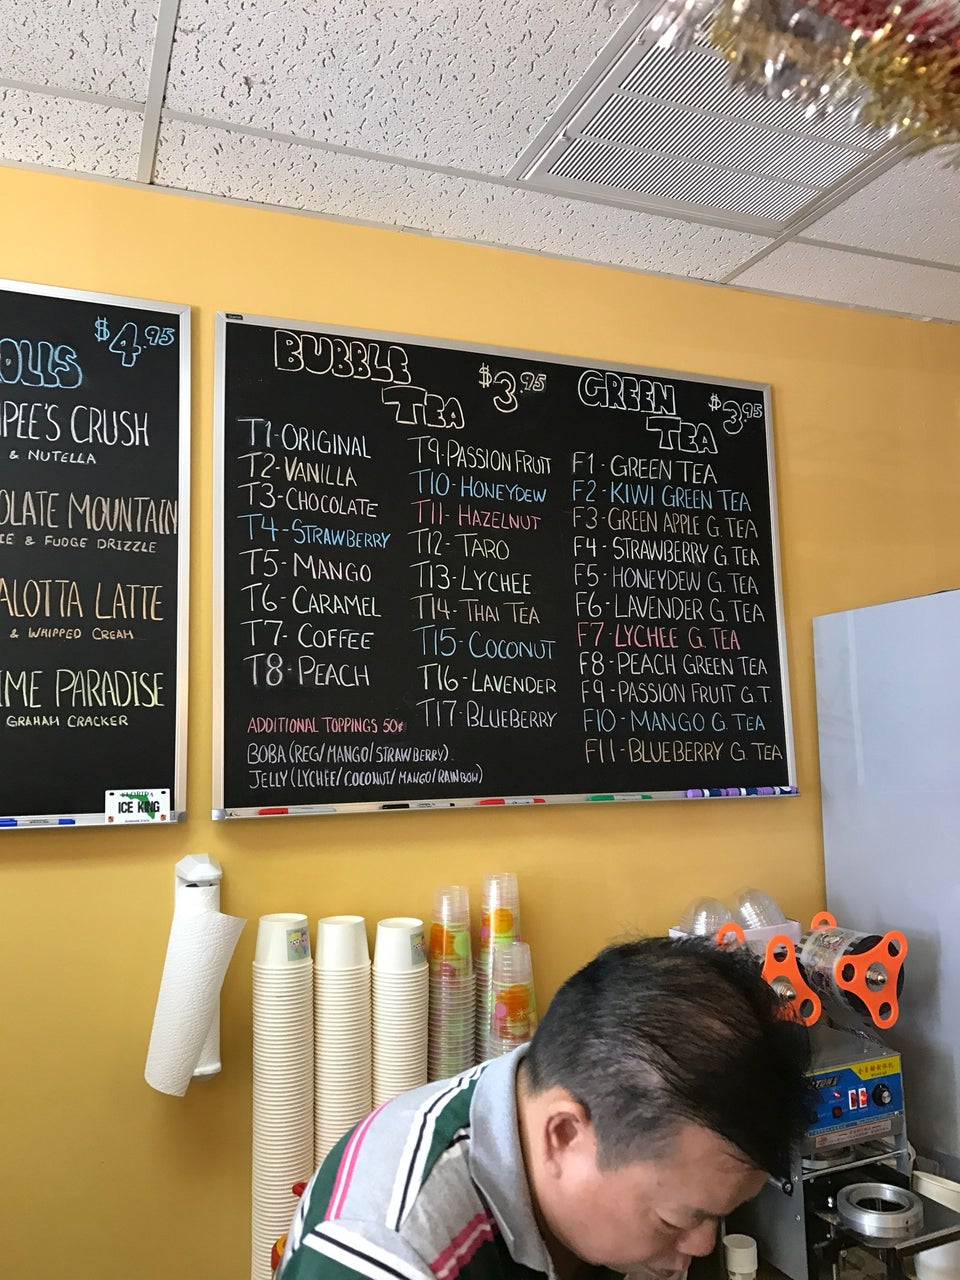 $4.95
OLLS
PEE'S CRUSH
& NUTELLA
OLATE MOUNTAIN
IE & FUDGE DRIZZLE
ALOTTA LATTE
& WHIPPED CREAM
IME PARADISE
GRAHAM CRACKER
FLORIDA
ICE KING
BUBBLE TEA $3.95
T1-ORIGINAL
T2-VANILLA
T3-CHOCOLATE
T4-STRAWBERRY
T5-MANGO
T6-CARAMEL
T7-COFFEE
T8-PEACH
T9-PASSION FRUIT
T10-HONEYDEW
T11-HAZELNUT
T12-TARO
T13-LYCHEE
T14-THAI TEA
T15-COCONUT
T16-LAVENDER
T17-BLUEBERRY
ADDITIONAL TOPPINGS 50¢
BOBA (REG/MANGO/STRAWBERRY)
JELLY (LYCHEE/COCONUT/MANGO/RAINBOW)
GREEN TEA $3.95
F1-GREEN TEA
F2-KIWI GREEN TEA
F3-GREEN APPLE G. TEA
F4-STRAWBERRY G. TEA
F5-HONEYDEW G. TEA
F6-LAVENDER G. TEA
F7-LYCHEE G. TEA
F8-PEACH GREEN TEA
F9-PASSION FRUIT G.T.
F10-MANGO G TEA
F11-BLUEBERRY G. TEA